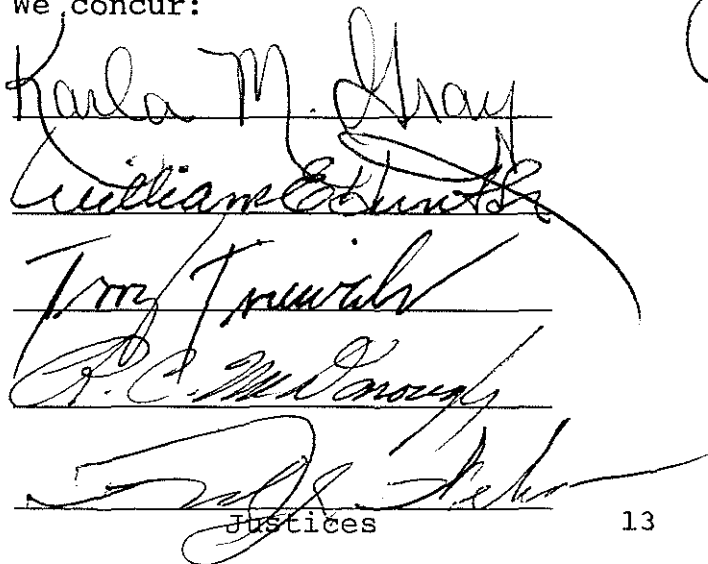 We concur:
Karla M. Gray
William E Hunt Sr
Terry Trieweiler
R. C. McDonough
Justices 13